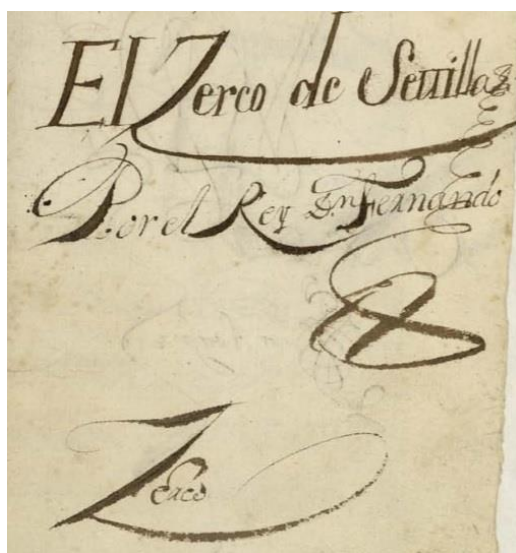 El Zerco de Seuilla
Por el Rey Dn Fernando